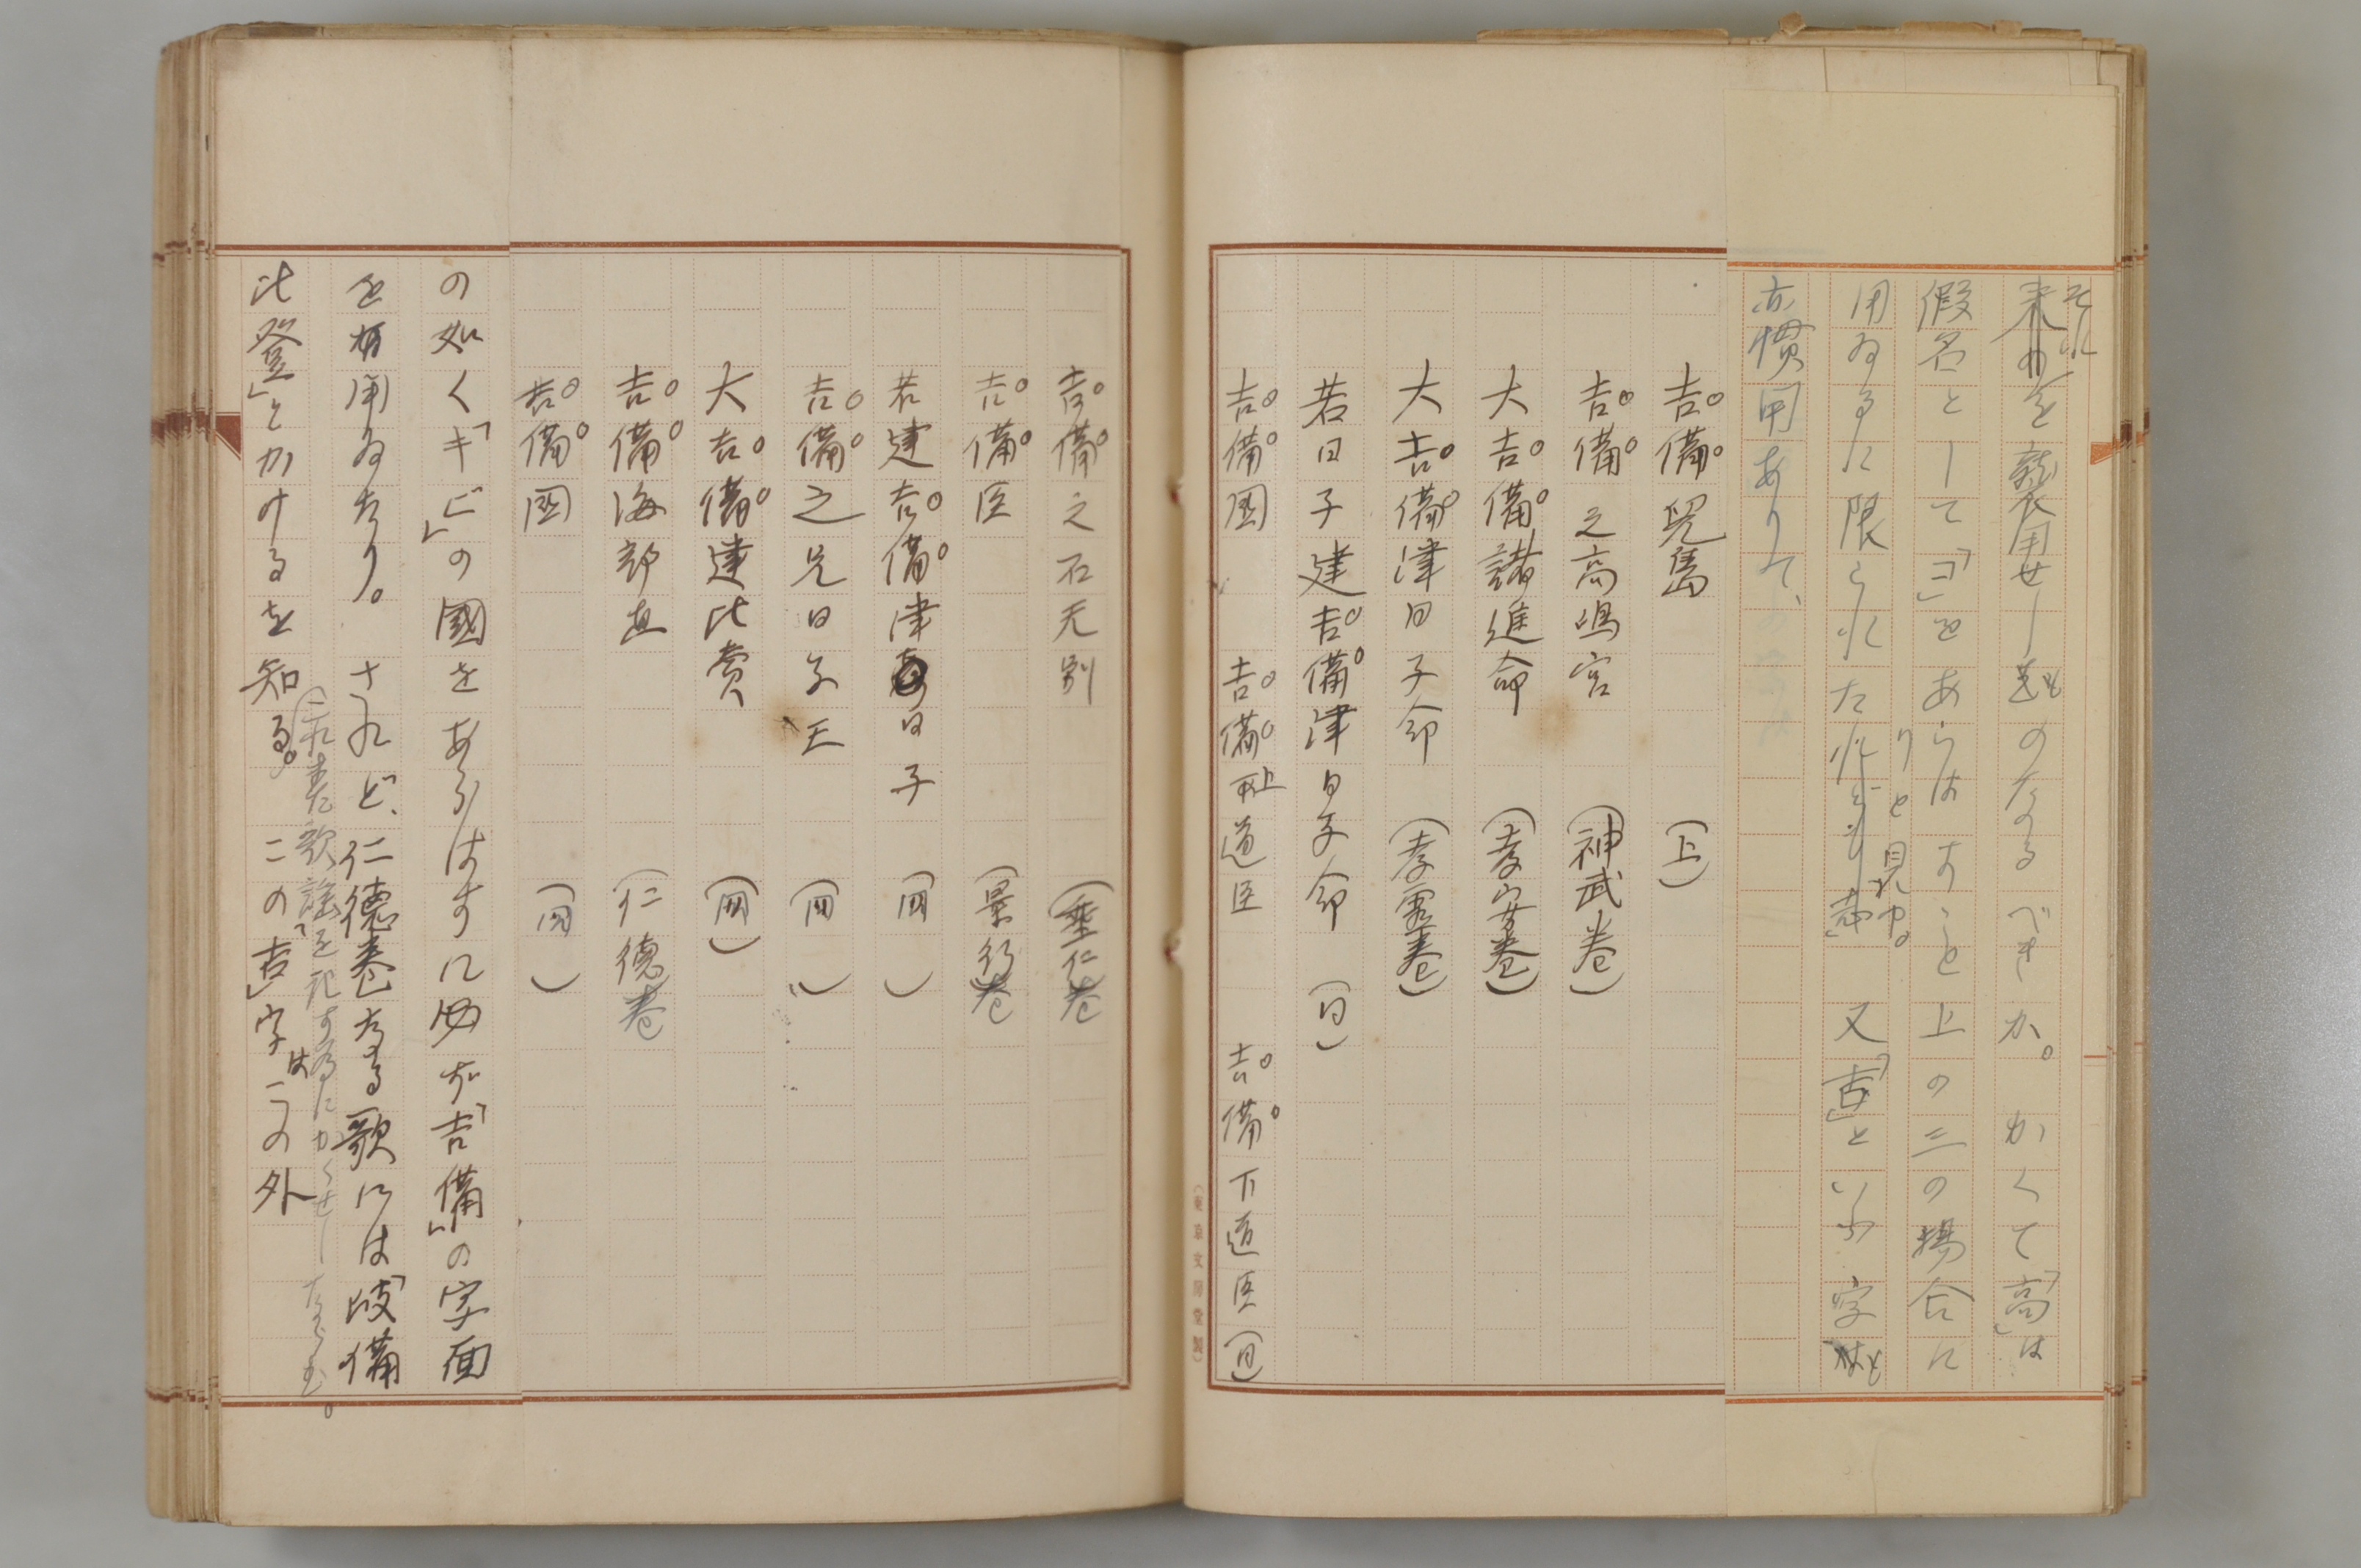 それを襲用せしものなるべきか。かくて「高」は
假名として「コ」をあらはすこと上の三の場合に
用ゐるに限られたりと見ゆ。又「吉」といふ字も
亦慣用ありて、
吉備兒島（上）
吉備之高嶋宮（神武巻）
大吉備諸進命（孝安巻）
大吉備津日子命（孝霊巻）
若日子建吉備津日子命（同）
吉備國 吉備上道臣 吉備下道臣（同）
吉備之石无別（垂仁巻）
吉備臣（景行巻）
若建吉備津日子（同）
吉備之兄日子王（同）
大吉備建比賣（同）
吉備海部直（仁徳巻）
吉備國（同）
の如く「キビ」の國をあらはすに必ず「吉備」の字面
を用ゐたり。されど、仁徳巻なる歌には「岐備
（これまた歌謡を記す為にかくせしならむ。
比登」とかけるを知る。この「吉」字はこの外
（東京文房堂製）